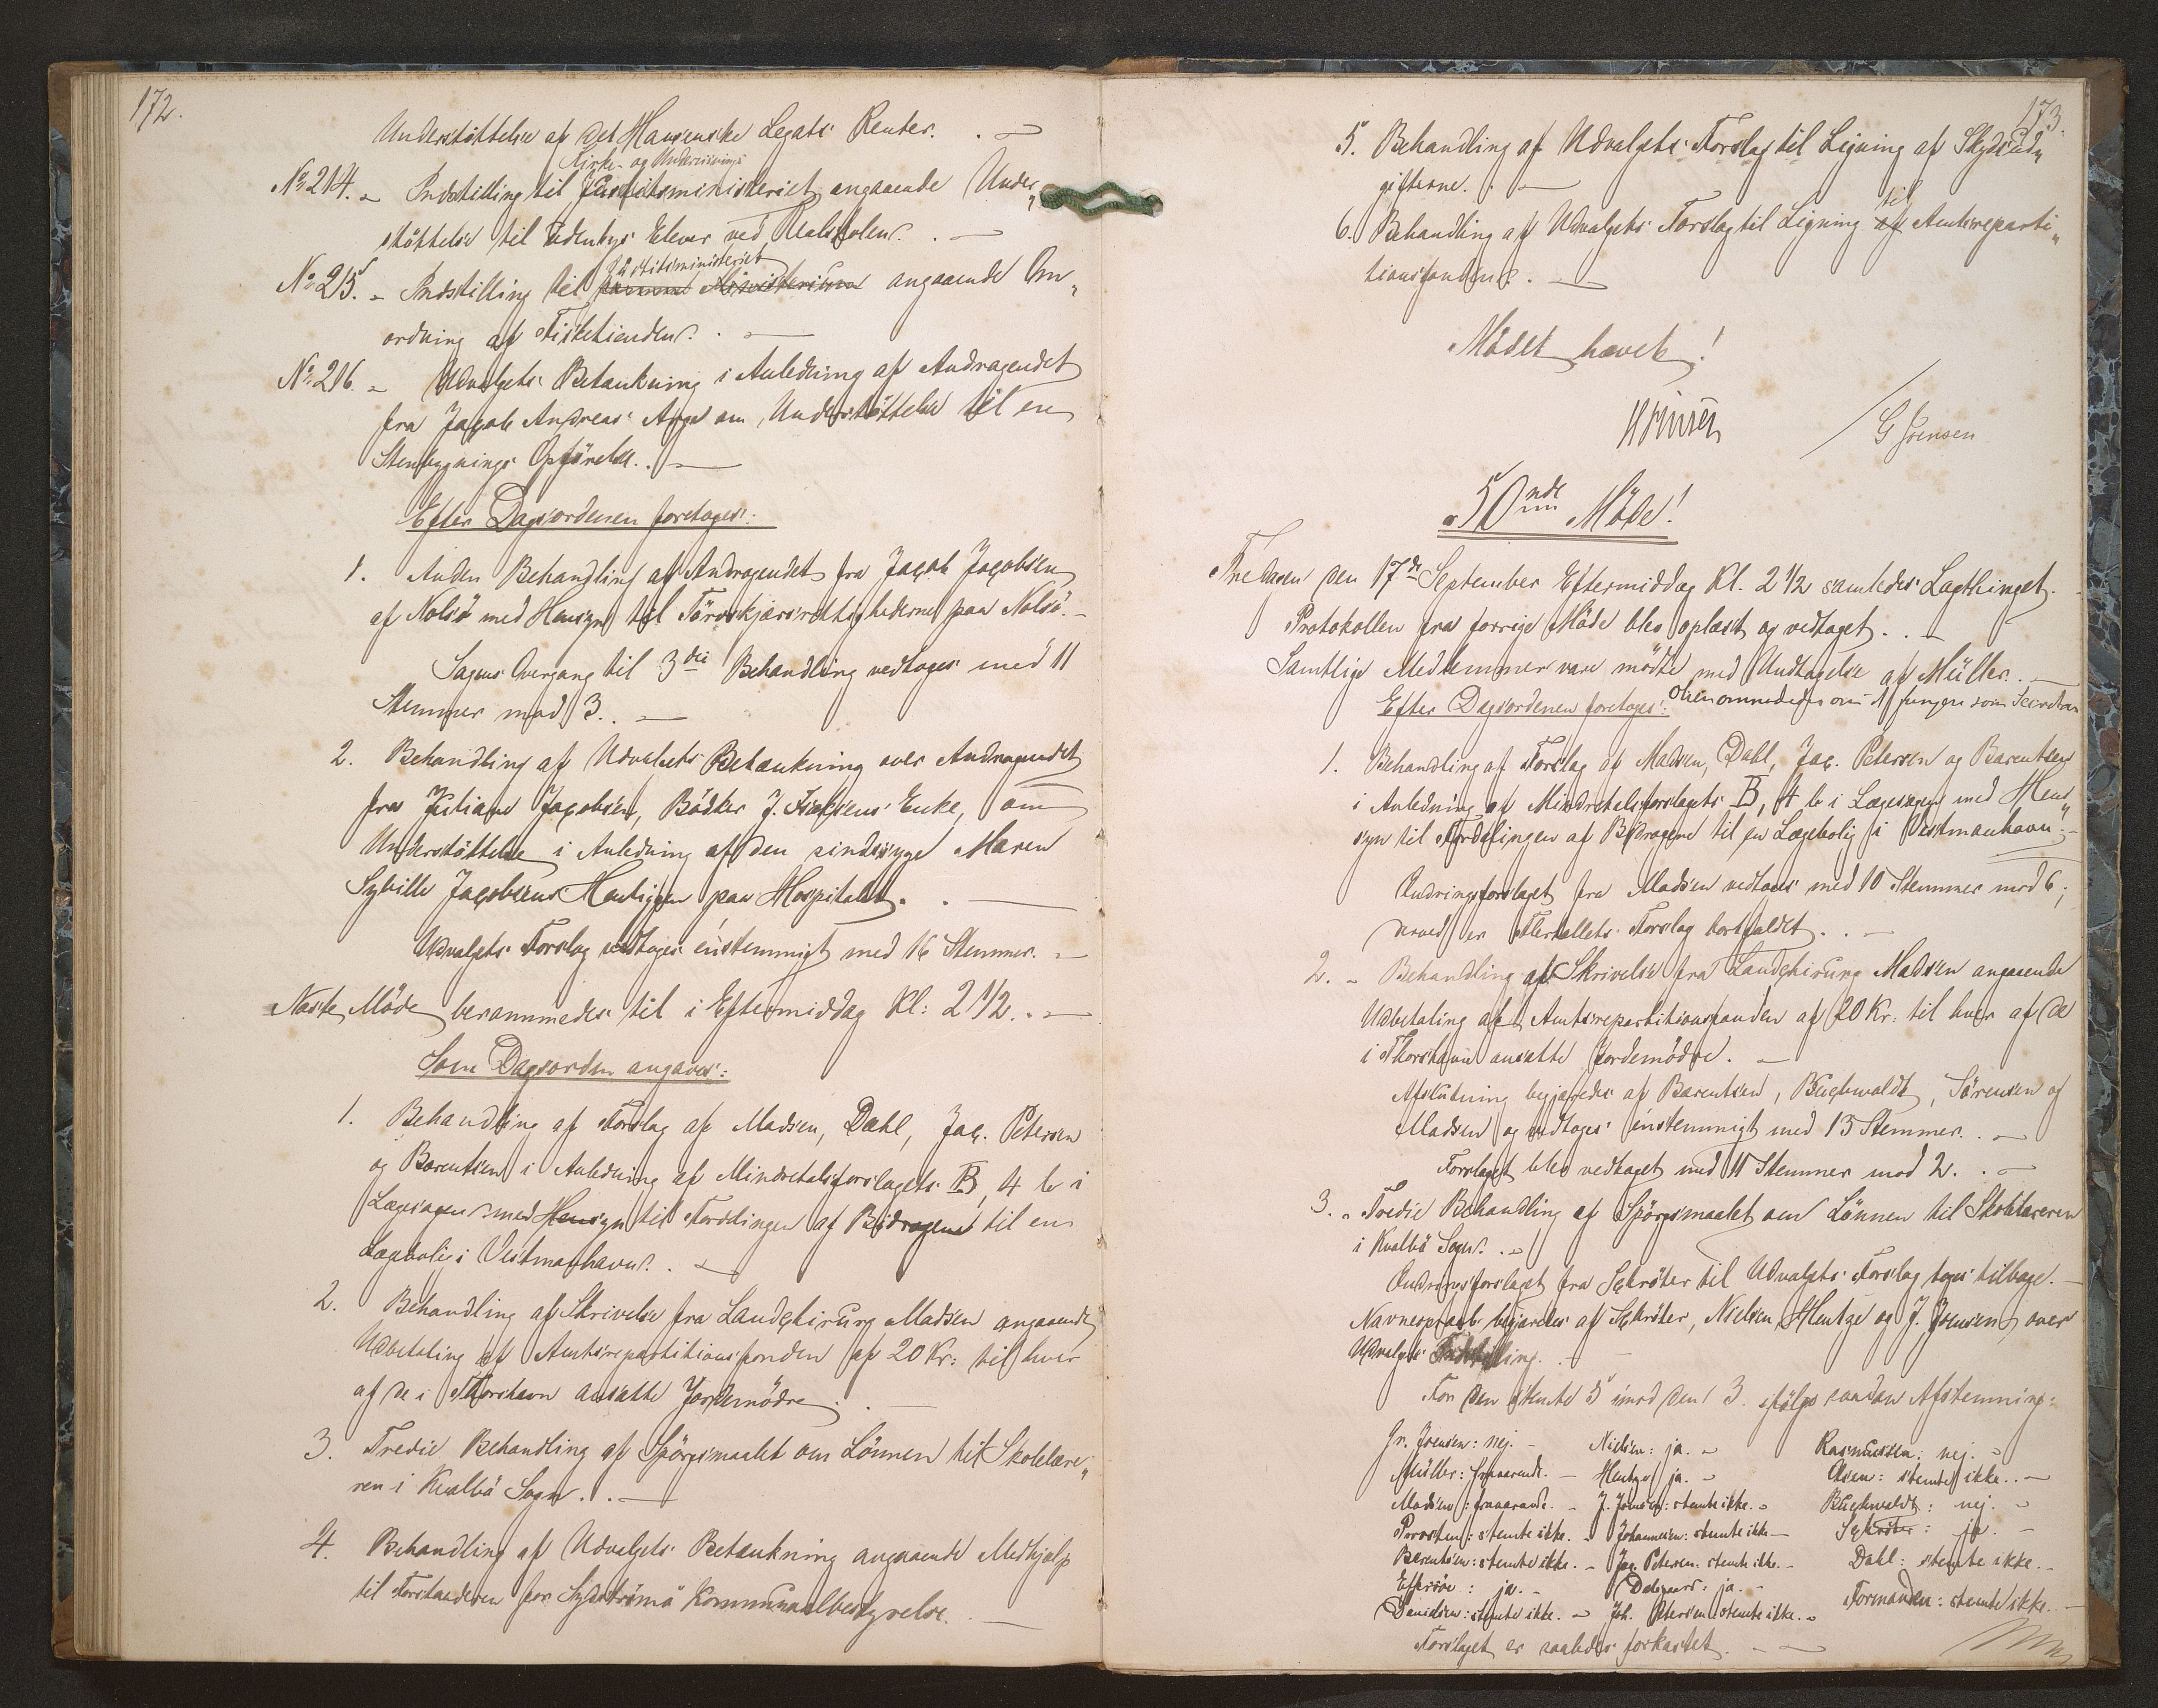 172.
Understöttelse af det Hansenske Legats Renter. . —
Kirke- og Undervisnings
No 214. – Indstilling til Justitsministeriet angaaende Under„
stöttelse til udenbys Elever ved Realskolen. . —
Justitsministeriet
No 215. – Indstilling til samme Ministerium angaaende Om„
ordning af Fisketienden. . —
No 216. – Udvalgets Betænkning i Anledning af Andragendet
fra Jacob Andreas Arge om Understöttelse til en
Stenbygnings Opförelse. . —
Efter Dagsordenen foretoges:
1. Anden Behandling af Andragendet fra Jacob Jacobsen
af Nolsö med Hensyn til Törveskjærsrettighederne paa Nolsö. –
Sagens Overgang til 3die Behandling vedtoges med 11
Stemmer mod 3. . —
2. Behandling af Udvalgets Betænkning over Andragendet
fra Juliane Jacobsen, Bödker J. Isaksens Enke, om
Understöttelse i Anledning af den sindssyge Maren
Sybille Jacobsens Henliggen paa Hospitalet. . —
Udvalgets Forslag vedtoges énstemmigt med 16 Stemmer. –
Næste Möde berammedes til i Eftermiddag Kl: 2 1/2. . –
Som Dagsorden angaves:
1. Behandling af Forslag af Madsen, Dahl, Jac. Petersen
og Barentsen i Anledning af Mindretalsforslagets B, 4 b i
Lægesagen med Hensyn til Fordelingen af Bidragene til en
Lægebolig i Vestmanhavn. . —
2. Behandling af Skrivelse fra Landchirurg Madsen angaaende
Udbetaling af Amtsrepartitionsfonden af 20 Kr: til hver
af de i Thorshavn ansatte Jordemödre. . —
3. Tredie Behandling af Spörgsmaalet om Lönnen til Skolelære„
ren i Kvalbö Sogn. . —
4. Behandling af Udvalgets Betænkning angaaende Medhjælp
til Forstanderen for Sydströmö Kommunalbestyrelse. —
173.
5. Behandling af Udvalgets Forslag til Ligning af Skydsud„
gifterne. . —
6. Behandling af Udvalgets Forslag til Ligning af til Amtsreparti„
tionsfonden. . —
Mödet hævet!
/ G Joensen
50nde Möde!
Fredagen den 17de September Eftermiddag Kl. 2 1/2 samledes Lagthinget.
Protokollen fra forrige Möde blev oplæst og vedtaget. . –
Samtlige Medlemmer vare mödte med Undtagelse af Müller. . —
Efter Dagsordenen foretoges: Olsen anmodedes om at fungere som Secretair
1. Behandling af Forslag af Madsen, Dahl, Jac. Petersen og Barentsen
i Anledning af Mindretalsforslagets B, 4 b i Lægesagen med Hen„
syn til Fordelingen af Bidragene til en Lægebolig i Vestmanhavn. –
Ændringsforslaget fra Madsen vedtoges med 10 Stemmer mod 6;
derved er Flertallets Forslag bortfaldet. . –
2. – Behandling af Skrivelse fra Landchirurg Madsen angaaende
Udbetaling af Amtsrepartitionsfonden af 20 Kr. til hver af de
i Thorshavn ansatte Jordemödre. . –
Afslutning begjæredes af Barentsen, Buchwaldt, Sörensen og
Madsen og vedtoges énstemmigt med 13 Stemmer. . –
Forslaget blev vedtaget med 11 Stemmer mod 2. . –
3. – Tredie Behandling af Spörgsmaalet om Lönnen til Skolelæreren
i Kvalbö Sogn. . –
Ændringsforslaget fra Schröter til Udvalgets Forslag toges tilbage. –
Navneopraab begjæredes af Schröter, Nielsen, Hentze og J. Joensen over
Udvalgets Indstilling. . –
For den stemte 5 imod den 3. ifölge saadan Afstemning:
Gr. Joensen: nej. – Nielsen: ja. – Rasmussen: nej. –
Müller: fraværende. – Hentze: ja. – Olsen: stemte ikke. . –
Madsen: fraværende. – J. Joensen: stemte ikke. – Buchwaldt: nej. –
Provsten: stemte ikke. – Johannesen: stemte ikke – Schröter: ja. –
Barentsen: stemte ikke. – Jac. Petersen: stemte ikke. – Dahl: stemte ikke. –
Effersöe: ja. – Dalsgaard: ja. – Formanden: stemte ikke. –
Danielsen: stemte ikke. – Joh. Petersen stemte ikke. –
Forslaget er saaledes forkastet. . –